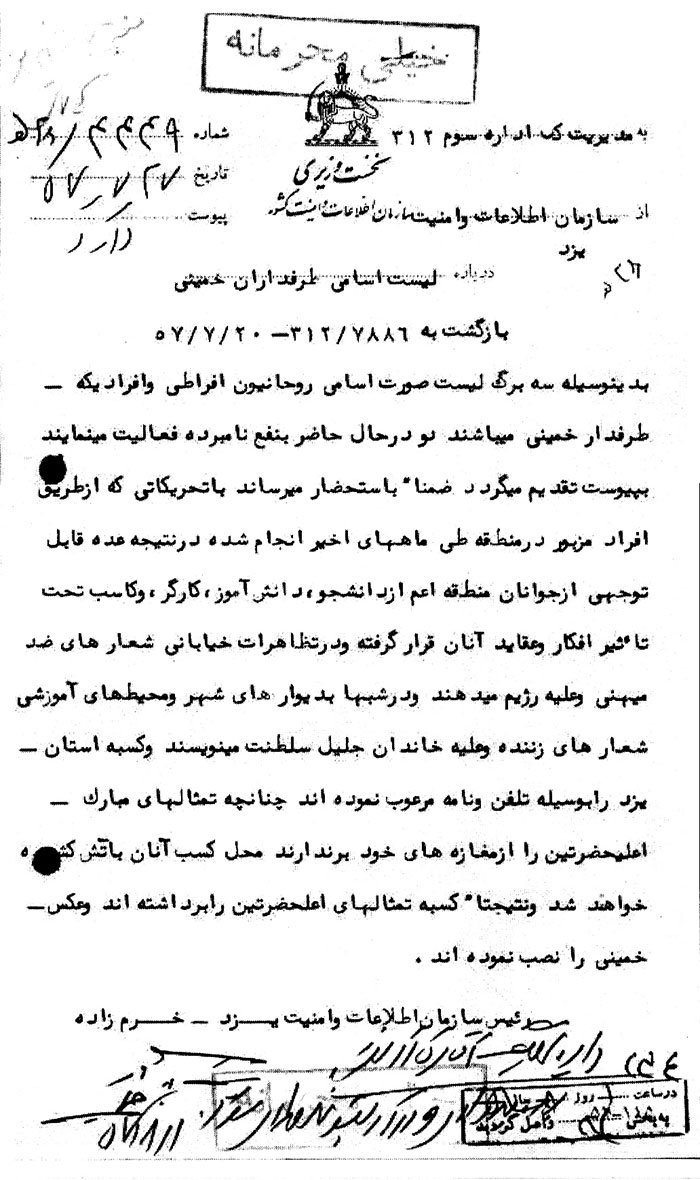 خیلی محرمانه
به مدیریت کل اداره سوم ۳۱۲
شماره ۴۴۴۹/
نخست وزیری
تاریخ ۵۷/۷/۲۷
سازمان اطلاعات و امنیت کشور
از سازمان اطلاعات وامنیت
پیوست دارد
یزد
درباره لیست اسامی طرفداران خمینی
بازگشت به ۳۱۲/۷۸۸۶ – ۵۷/۷/۲۰
بدینوسیله سه برگ لیست صورت اسامی روحانیون افراطی وافرادیکه –
طرفدار خمینی میباشند ودرحال حاضر بنفع نامبرده فعالیت مینمایند
بپیوست تقدیم میگردد ضمنا" باستحضار میرساند باتحریکاتی که ازطریق
افراد مزبور درمنطقه طی ماههای اخیر انجام شده درنتیجه عده قابل
توجهی ازجوانان منطقه اعم ازدانشجو، دانش آموز، کارگر، وکاسب تحت
تاءثیر افکار وعقاید آنان قرار گرفته ودرتظاهرات خیابانی شعار های ضد
میهنی وعلیه رژیم میدهند ودرشبها بدیوار های شهر ومحیطهای آموزشی
شعار های زننده وعلیه خاندان جلیل سلطنت مینویسند وکسبه استان –
یزد رابوسیله تلفن ونامه مرعوب نموده اند چنانچه تمثالهای مبارك –
اعلیحضرتین را ازمغازه های خود برندارند محل کسب آنان باتش
خواهند شد ونتیجتا" کسبه تمثالهای اعلحضرتین رابرداشته اند وعکس–
خمینی را نصب نموده اند .
رئیس سازمان اطلاعات وامنیت یـــزد – خـــرم زاده
درساعت روز
به بخش داخل گردید